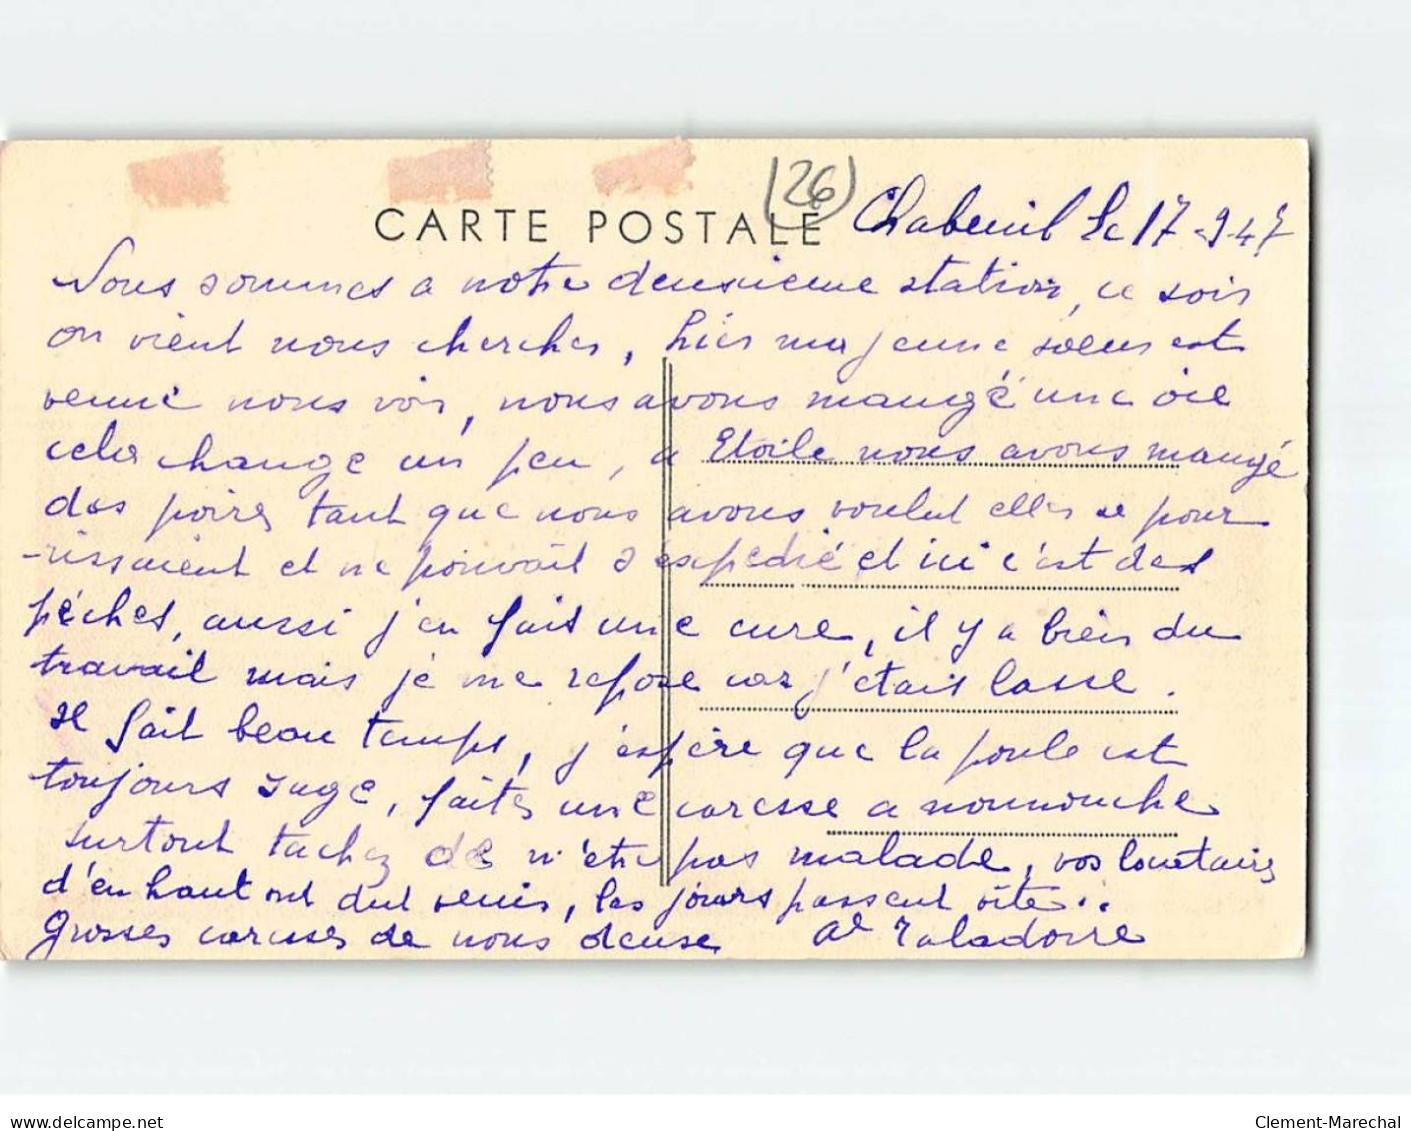 (26)
CARTE POSTALE
Chabeuil le 17-9-47
Nous sommes a notre deuxieme station, ce soir
on vient nous chercher, hier ma jeune sœur est
venue nous voir, nous avons mangé une oie
cela change un peu, a Etoile nous avons mangé
des poires tant que nous avons voulut elles se pour
-rissaient et ne pouvait s'expedié et ici c'est des
pêches, aussi j'en fait une cure, il y a bien du
travail mais je me repose car j'étais lasse.
Il fait beau temps, j'espère que la poule est
toujours sage, faites une caresse a nounouche
surtout tachez de n'etre pas malade, vos locataires
d'en haut ont dut venir, les jours passent vite..
Grosses caresses de nous deuse
delcampe.net
Clement-Marechal